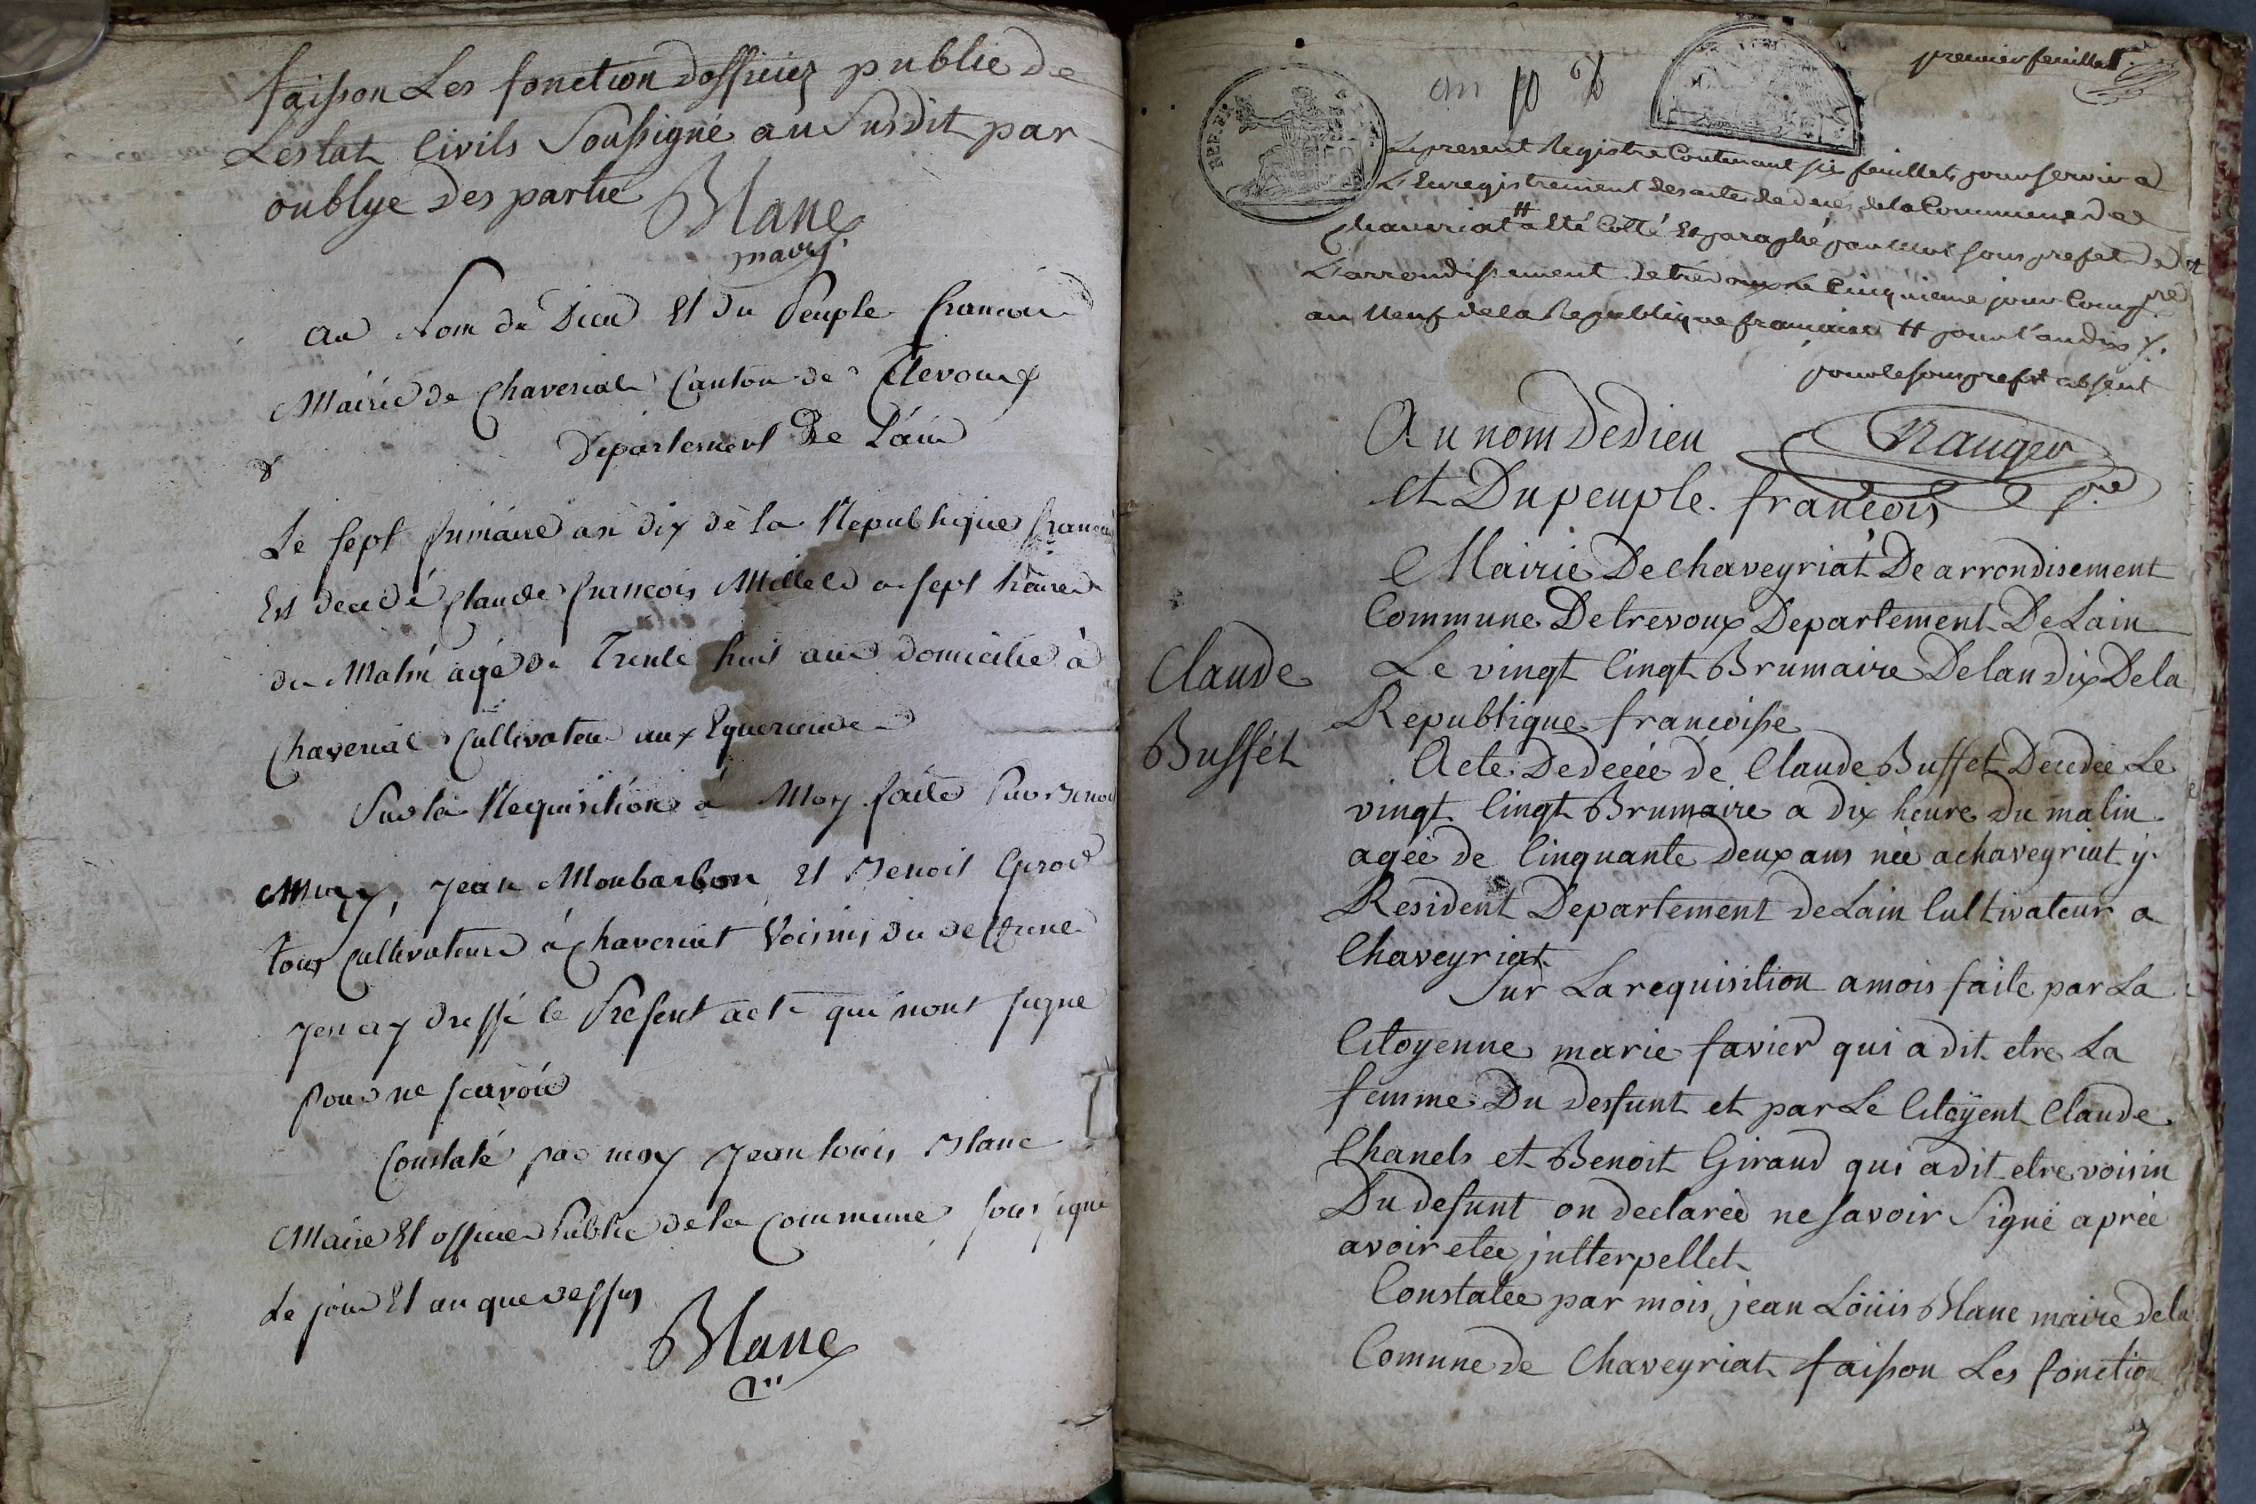 faisson Les fonction dofficiez publie de
Lestat Civils Soussigné au susdit par
oublye des partie
Blanc
maire
Au Nom de Dieu Et du Peuple francois
Mairie de Chaveriat Canton de Trevoux
Département de L'ain
Le sept frimaire an dix de la Republique francai
Est decedé Claude francois Millet a sept heure
du Matin agé de Trente huit ans domicilié à
Chaveriat Cultivateur aux
Sur la Requisition à Moy faite Par Benoit
Jean Monbarbon Et Benoit
tous Cultivateurs à Chaveriat Voisins du deffunt
jen ay dressé le Present acte qui nont signe
pour ne scavoir
Constaté par moy Jean Louis Blanc
Maire Et officier Public de la Commune sousigné
Le jour Et an que dessus
Blanc
premier feuillet
an 10
REP. FRA.
Le present Registre Contenant six feuillets pour servir a
L'Enregistrement des actes de deces de la Commune de
Chaveriat # a Eté Cotté Et paraphé par moi sous prefet de
L'arrondissement de trevoux Le Cinquieme jour Comp.re
an Neuf de la Republique francaise # pour l'an dix
pour le sous prefet absent
Au nom De Dieu
et Du peuple francois
Mairie De Chaveyriat De arrondisement
Commune De trevoux Departement De Lain
Claude
Buffét
Le vingt Cingt Brumaire De lan dix De la
Republique francoisse
Acte De deceé de Claude Buffet Decedeé Le
vingt Cingt Brumaire a dix heure Du matin
ageé de Cinquante deux ans neé a chaveyriat y
Resident Departement de Lain Cultivateur a
Chaveyriat
Sur La requisition a mois faite par La
Citoyenne marie favier qui a dit etre La
femme Du desfunt et par Le Citoÿent Claude
Chanels et Benoit Giraud qui a dit etre voisin
Du defunt on declareé ne savoir Signé apreé
avoir eteé jntterpellet
Constateé par mois jean Loüis Blanc maire de la
Comune de Chaveyriat faisson Les fonction